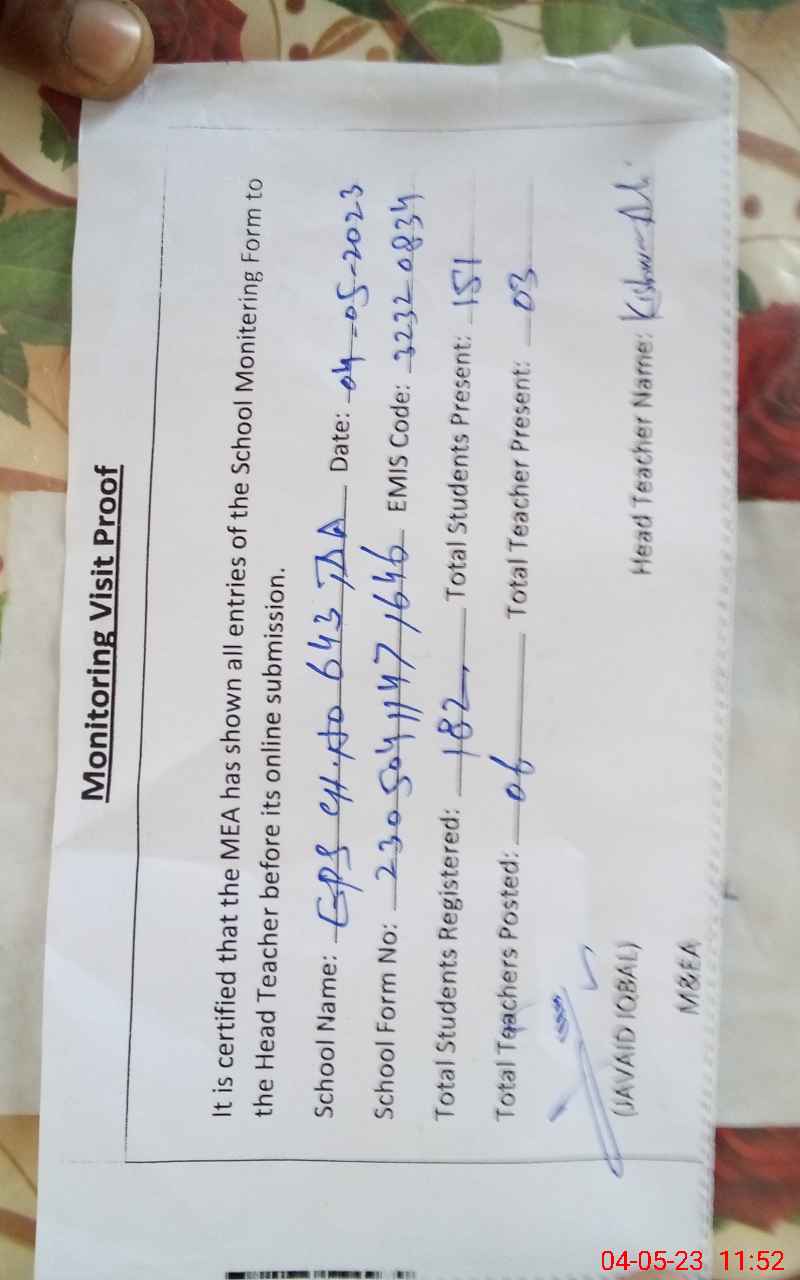 Monitoring Visit Proof
It is certified that the MEA has shown all entries of the School Monitering Form to
the Head Teacher before its online submission.
School Name: GPS CH.NO 643 TDA Date: 04-05-2023
School Form No: 23050411471646 EMIS Code: 32320834
Total Students Registered: 182 Total Students Present: 151
Total Teachers Posted: 06 Total Teacher Present: 03
(JAVAID IQBAL) Head Teacher Name:
M&EA
04-05-23 11:52